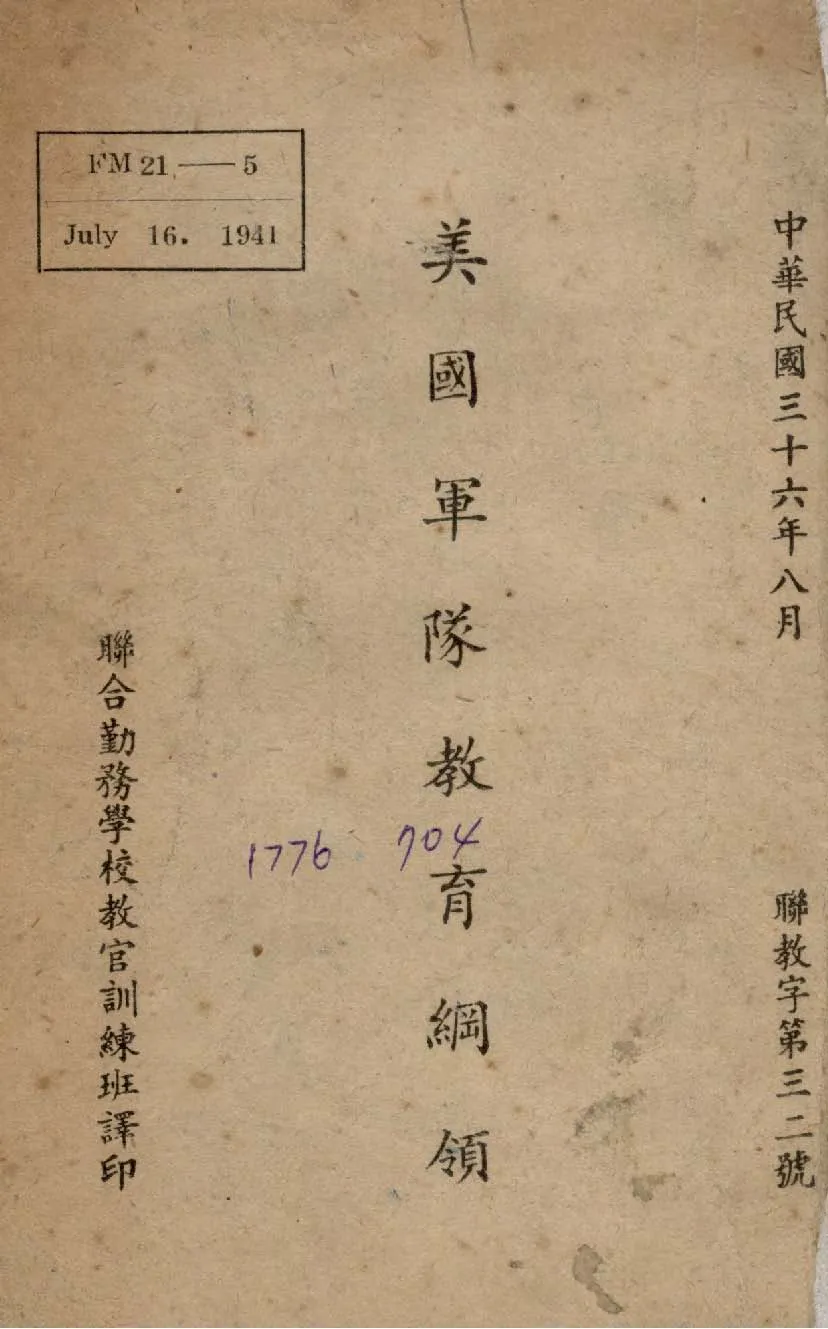 中華民國三十六年八月
聯教字第三二號
美國軍隊教育綱領
FM 21—5
July 16. 1941
1776 704
聯合勤務學校教官訓練班譯印